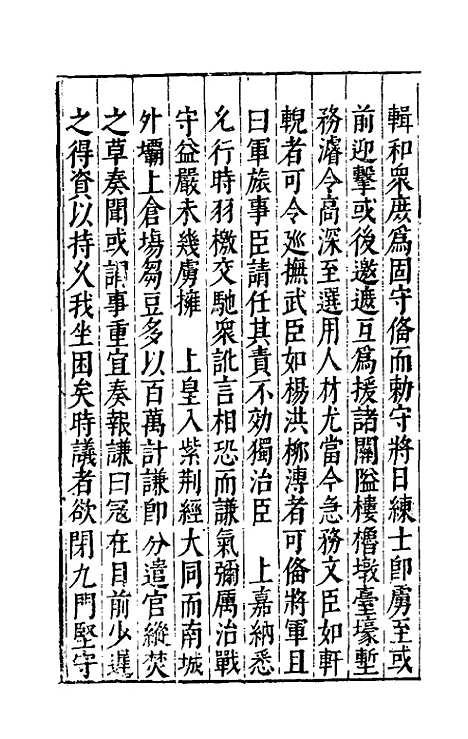 輯和衆庶爲固守俻而勅守將日練士卽虜至或
前迎擊或後邀遮互爲援諸關隘樓櫓墩臺壕塹
務濬令高深至選用人材尤當今急務文臣如軒
輗者可令巡撫武臣如楊洪柳溥者可俻將軍且
曰軍旅事臣請任其責不効獨治臣　上嘉納悉
允行時羽檄交馳衆訛言相恐而謙氣彌厲治戰
守益嚴未幾虜擁　上皇入紫荆經大同而南城
外壩上倉塲芻豆多以百萬計謙卽分遣官縱焚
之草奏聞或謂事重宜奏報謙曰冦在目前少遲
之得資以持久我坐困矣時議者欲閉九門堅守